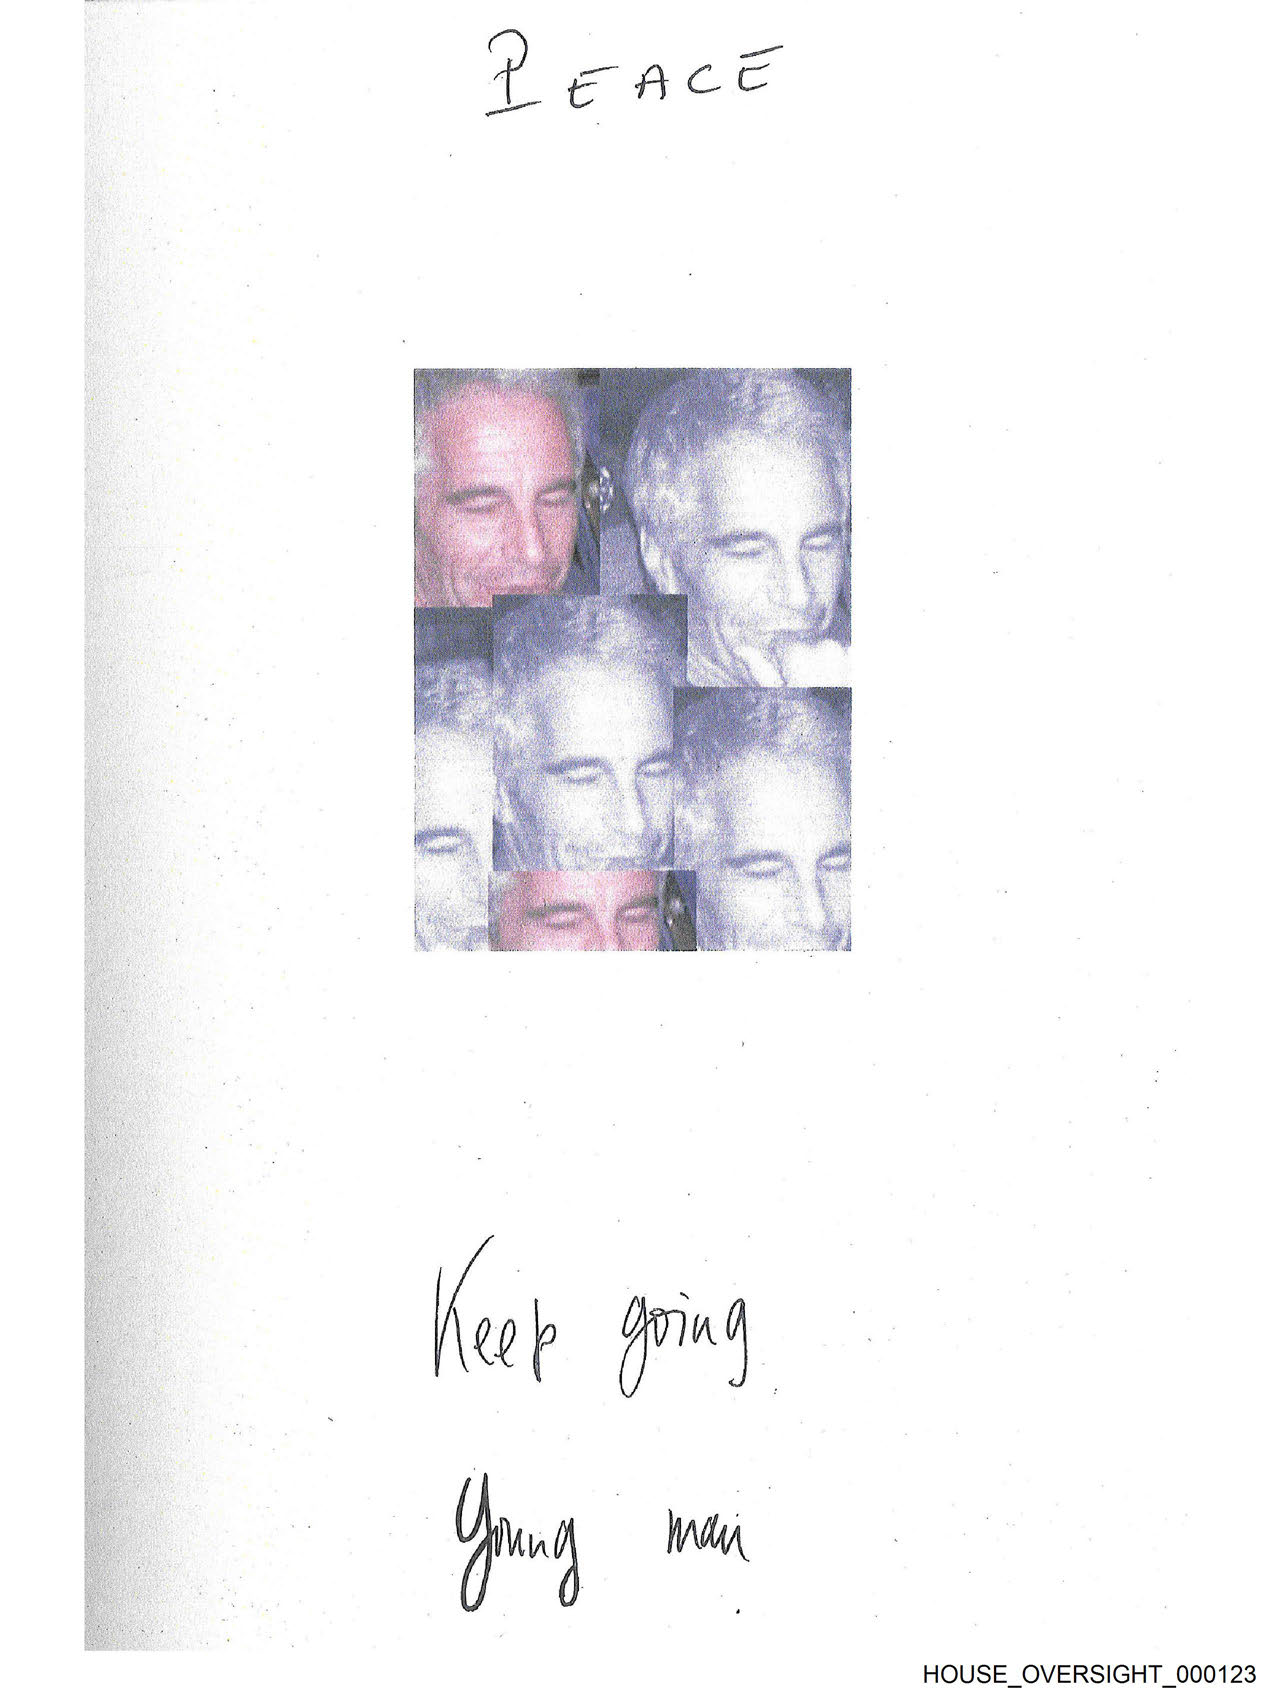 PEACE
Keep going
Young man
HOUSE_OVERSIGHT_000123